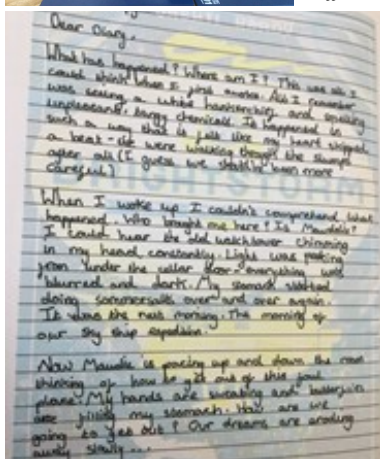 Dear Diary,
What has happened? Where am I? This was all I
could think when I first awoke. All I remember
was seeing a white handkerchief and smelling
unpleasant, tangy chemicals. It happened in
such a way that is felt like my heart skipped
a beat - we were walking through the slumps
after all (I guess we should've been more
careful)
When I woke up I couldn't comprehend what
happened. Who brought me here? Is Maudie?
I could hear the old watchtower chimming
in my head constantly. Light was peeking
from under the cellar door - everything was
blurred and dark. My stomach started
doing sommersaults over and over again.
It was the next morning. The morning of
our sky ship expedition.
Now Maudie is pacing up and down the room
thinking of how to get out of this foul
place. My hands are sweating and butterflies
are filling my stomach. How are we
going to get out? Our dreams are
away slowly...